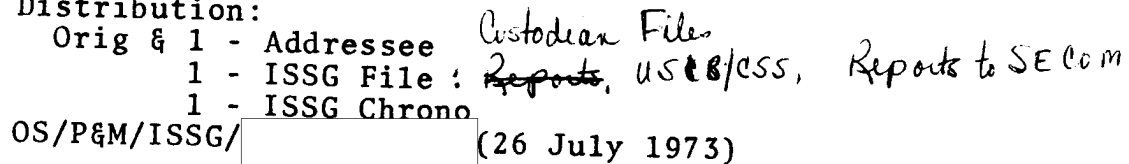 Distribution:
Orig & 1 - Addressee Custodian Files
1 - ISSG File : Reports, USIB/CSS, Reports to SECOM
1 - ISSG Chrono
OS/P&M/ISSG/ (26 July 1973)